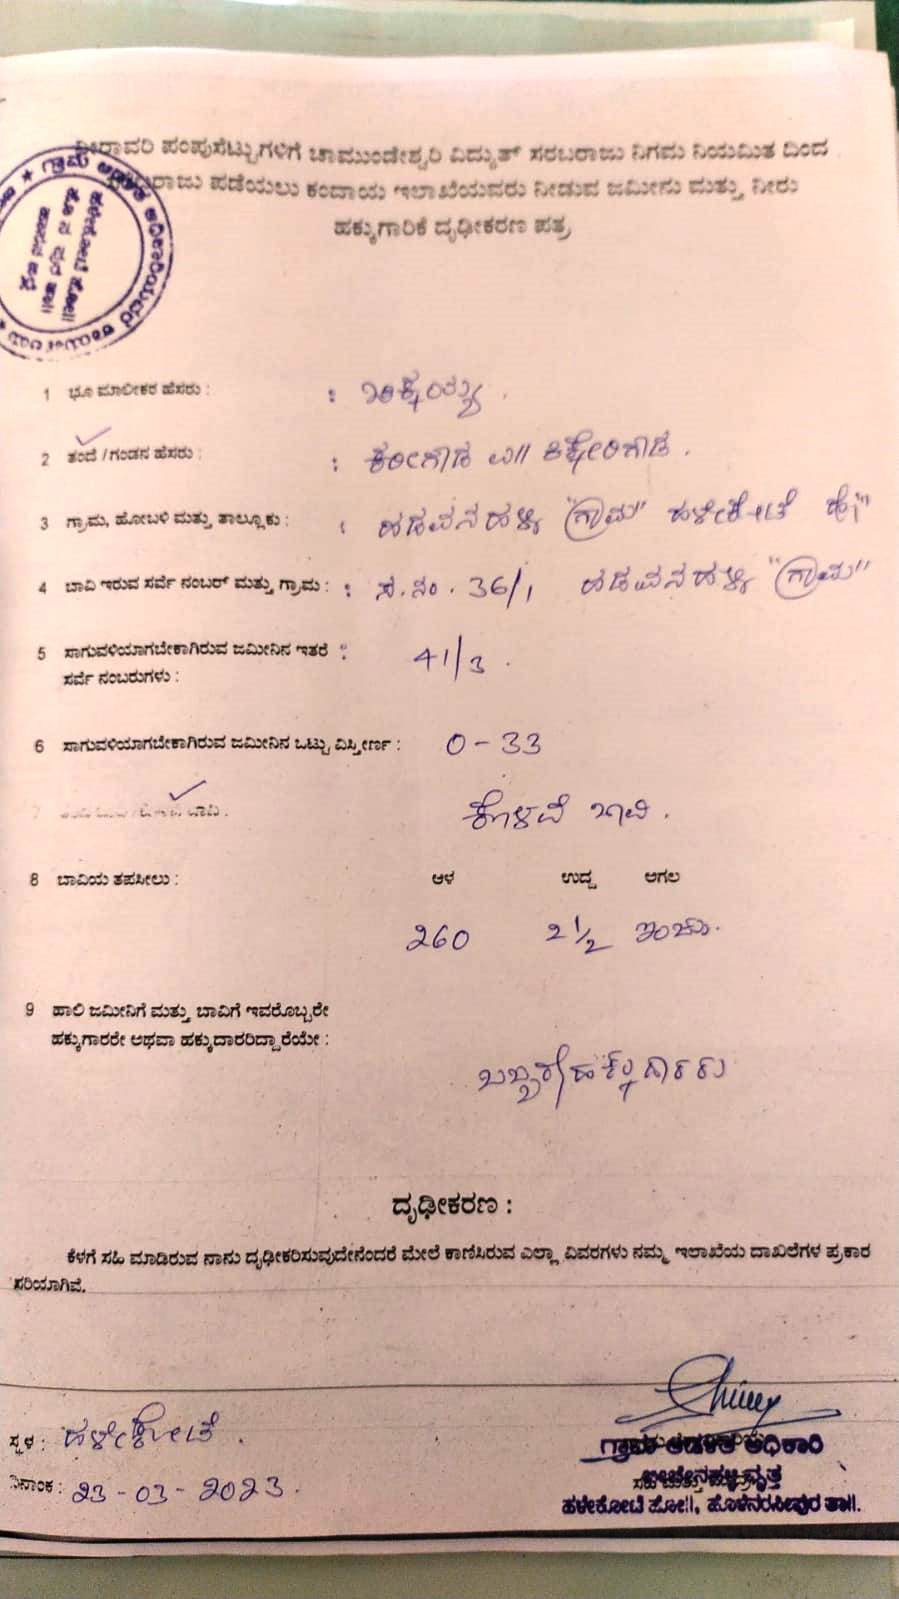 ನೀರಾವರಿ ಪಂಪುಸೆಟ್ಟುಗಳಿಗೆ ಚಾಮುಂಡೇಶ್ವರಿ ವಿದ್ಯುತ್ ಸರಬರಾಜು ನಿಗಮ ನಿಯಮಿತ ದಿಂದ
ಸರಬರಾಜು ಪಡೆಯಲು ಕಂದಾಯ ಇಲಾಖೆಯವರು ನೀಡುವ ಜಮೀನು ಮತ್ತು ನೀರು
ಹಕ್ಕುಗಾರಿಕೆ ದೃಢೀಕರಣ ಪತ್ರ
1 ಭೂ ಮಾಲೀಕರ ಹೆಸರು :
2 ತಂದೆ / ಗಂಡನ ಹೆಸರು :
3 ಗ್ರಾಮ, ಹೋಬಳಿ ಮತ್ತು ತಾಲ್ಲೂಕು : ಹಡವನಹಳ್ಳಿ "ಗ್ರಾಮ" ಹಳೇಕೋಟೆ ಹೋ"
4 ಬಾವಿ ಇರುವ ಸರ್ವೆ ನಂಬರ್ ಮತ್ತು ಗ್ರಾಮ : ಸ.ನಂ. 36/1 ಹಡವನಹಳ್ಳಿ "ಗ್ರಾಮ"
5 ಸಾಗುವಳಿಯಾಗಬೇಕಾಗಿರುವ ಜಮೀನಿನ ಇತರೆ : 41/3.
ಸರ್ವೆ ನಂಬರುಗಳು :
6 ಸಾಗುವಳಿಯಾಗಬೇಕಾಗಿರುವ ಜಮೀನಿನ ಒಟ್ಟು ವಿಸ್ತೀರ್ಣ : 0-33
7 ಬಾವಿ : ಕೊಳವೆ ಬಾವಿ.
8 ಬಾವಿಯ ತಪಸೀಲು : ಆಳ ಉದ್ದ ಅಗಲ
260 2 1/2 ಇಂಚು.
9 ಹಾಲಿ ಜಮೀನಿಗೆ ಮತ್ತು ಬಾವಿಗೆ ಇವರೊಬ್ಬರೇ
ಹಕ್ಕುಗಾರರೇ ಅಥವಾ ಹಕ್ಕುದಾರರಿದ್ದಾರೆಯೇ :
ಒಬ್ಬರೇ ಹಕ್ಕುದಾರರು
ದೃಢೀಕರಣ :
ಕೆಳಗೆ ಸಹಿ ಮಾಡಿರುವ ನಾನು ದೃಢೀಕರಿಸುವುದೇನೆಂದರೆ ಮೇಲೆ ಕಾಣಿಸಿರುವ ಎಲ್ಲಾ ವಿವರಗಳು ನಮ್ಮ ಇಲಾಖೆಯ ದಾಖಲೆಗಳ ಪ್ರಕಾರ
ಸರಿಯಾಗಿವೆ.
ಸ್ಥಳ : ಹಳೇಕೋಟೆ.
ದಿನಾಂಕ : 23-03-2023.
ಗ್ರಾಮ ಆಡಳಿತ ಅಧಿಕಾರಿ
ವೃತ್ತ
ಹಳೇಕೋಟೆ ಹೋ||, ಹೊಳೆನರಸೀಪುರ ತಾ||.